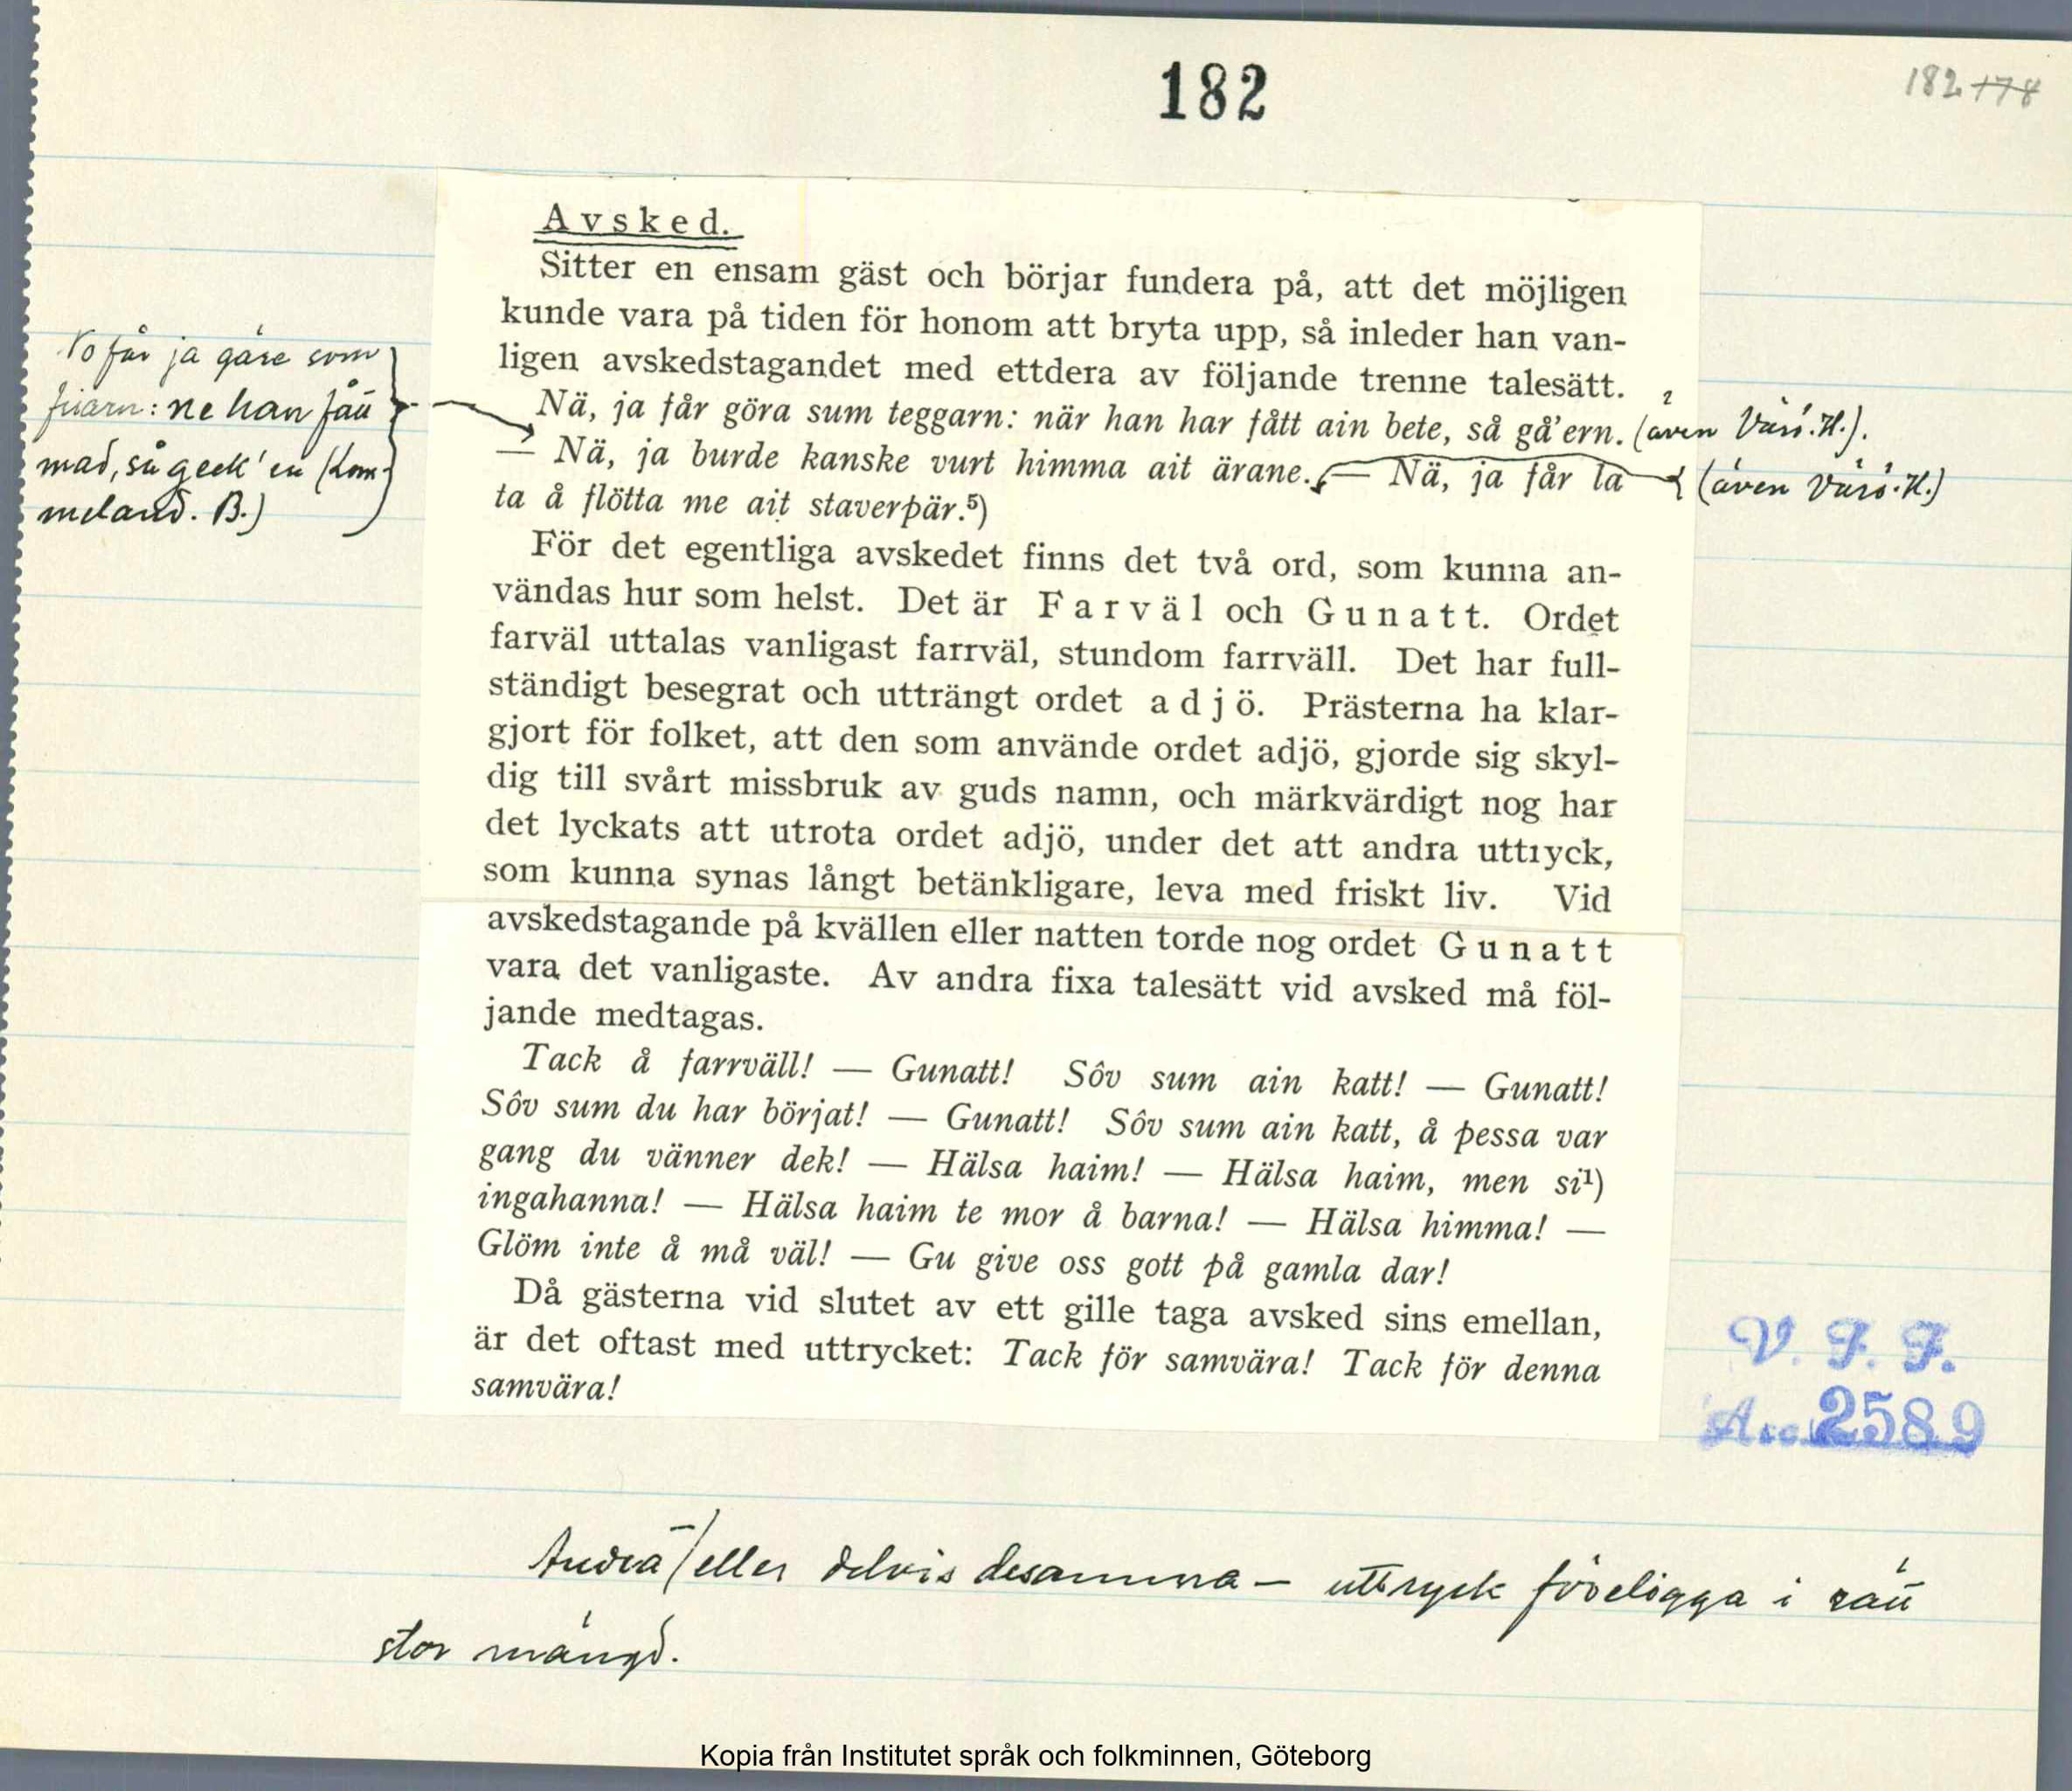 182
182 178
Avsked.
Sitter en ensam gäst och börjar fundera på, att det möjligen
kunde vara på tiden för honom att bryta upp, så inleder han van-
ligen avskedstagandet med ettdera av följande trenne talesätt.
Nä, ja får göra sum teggarn: när han har fått ain bete, så gå'ern. (även Värö. H.).
— Nä, ja burde kanske vurt himma ait ärane. — Nä, ja får la (även Värö. H.)
ta å flötta me ait staverpär.⁵)
No får ja gäre som
: ne han fått
mad, så geck'en (Kom-
meland. B.)
För det egentliga avskedet finns det två ord, som kunna an-
vändas hur som helst. Det är Farväl och Gunatt. Ordet
farväl uttalas vanligast farrväl, stundom farrväll. Det har full-
ständigt besegrat och utträngt ordet adjö. Prästerna ha klar-
gjort för folket, att den som använde ordet adjö, gjorde sig skyl-
dig till svårt missbruk av guds namn, och märkvärdigt nog har
det lyckats att utrota ordet adjö, under det att andra uttryck,
som kunna synas långt betänkligare, leva med friskt liv. Vid
avskedstagande på kvällen eller natten torde nog ordet Gunatt
vara det vanligaste. Av andra fixa talesätt vid avsked må föl-
jande medtagas.
Tack å farrväll! — Gunatt! Sôv sum ain katt! — Gunatt!
Sôv sum du har börjat! — Gunatt! Sôv sum ain katt, å pessa var
gang du vänner dek! — Hälsa haim! — Hälsa haim, men si¹)
ingahanna! — Hälsa haim te mor å barna! — Hälsa himma! —
Glöm inte å må väl! — Gu give oss gott på gamla dar!
Då gästerna vid slutet av ett gille taga avsked sins emellan,
är det oftast med uttrycket: Tack för samvära! Tack för denna
samvära!
V. F. F.
Acc. 2589
Andra — eller delvis desamma — uttryck föreligga i rätt
stor mängd.
Kopia från Institutet språk och folkminnen, Göteborg